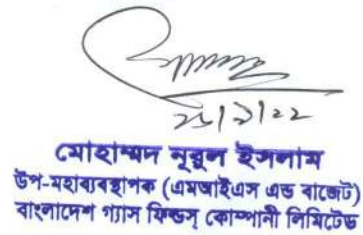 ২৬/১/২২
মোহাম্মদ নূরুল ইসলাম
উপ-মহাব্যবস্থাপক (এমআইএস এন্ড বাজেট)
বাংলাদেশ গ্যাস ফিল্ডস্ কোম্পানী লিমিটেড